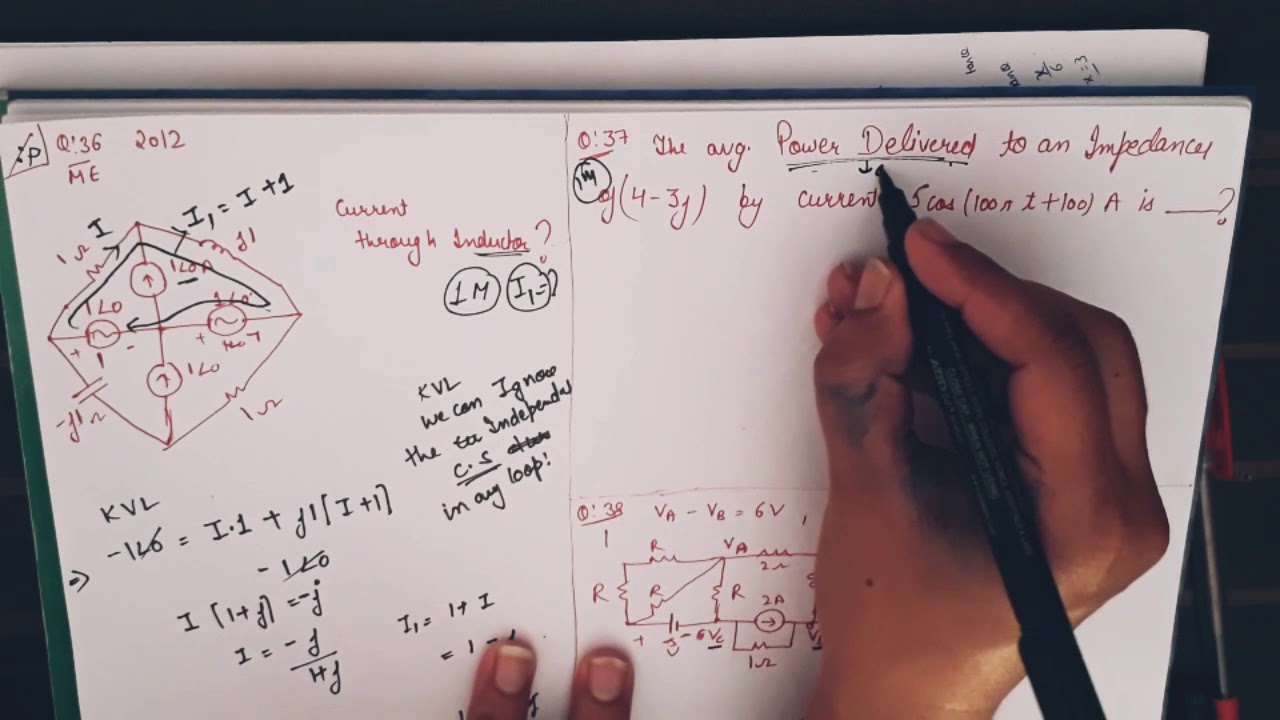 :P
Q:36 2012
ME
I
I₁ = I+1
1Ω
j1
1∠0 A
1∠0
1∠0
+ 1 -
+
1∠0
-j1Ω
1Ω
Current
through Inductor?
1M
I₁=?
KVL
we can Ignore
the Independ
C.S
in any loop!
KVL
-1∠0 = I.1 + j1[I+1]
- 1∠0
⇒
I[1+j] = -j
I = -j
1+j
I₁ = 1+I
= 1 -
Q:37 The avg. Power Delivered to an Impedance
1M
of (4-3j) by current 5cos(100π t+100) A is ___?
Q:38 VA - VB = 6V,
1
R
VA
2Ω
R
R
R
2A
+ - 6 VC
1Ω